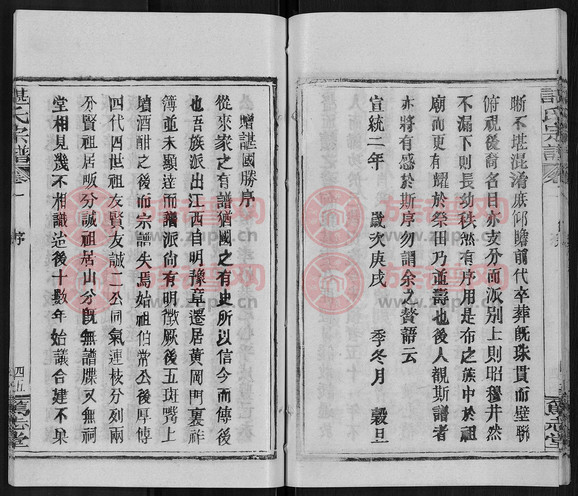 諶氏宗譜
卷一
序
晰不堪混淆庶仰瞻前代卒葬既珠貫而璧聯
俯視後裔名目亦支分而派別上則昭穆井然
不漏下則長幼秩然有序用是布之族中於祖
廟而更有耀於榮田乃並壽也後人觀斯譜者
亦將有感於斯序勿謂余之贅語云
宣統二年 歲次庚戌 季冬月 穀旦
篤志堂
贈諶國勝序
從來家之有譜猶國之有史所以信今而傳後
也吾族派出江西自明豫章遷居黃岡門裏祚
簿並未顯達而譜派尚有明徵厥後五斑嘴上
墳酒酣之後而宗譜失焉始祖伯常公後厚傳
四代四世祖友賢友誠二公同氣連枝分列兩
分賢祖居畈分誠祖居山分既無譜牒又無祠
堂相見幾不相識迨後十數年始議合建不果
諶氏宗譜
卷一
序
四五
篤志堂
族谱网
www.zupu.cn